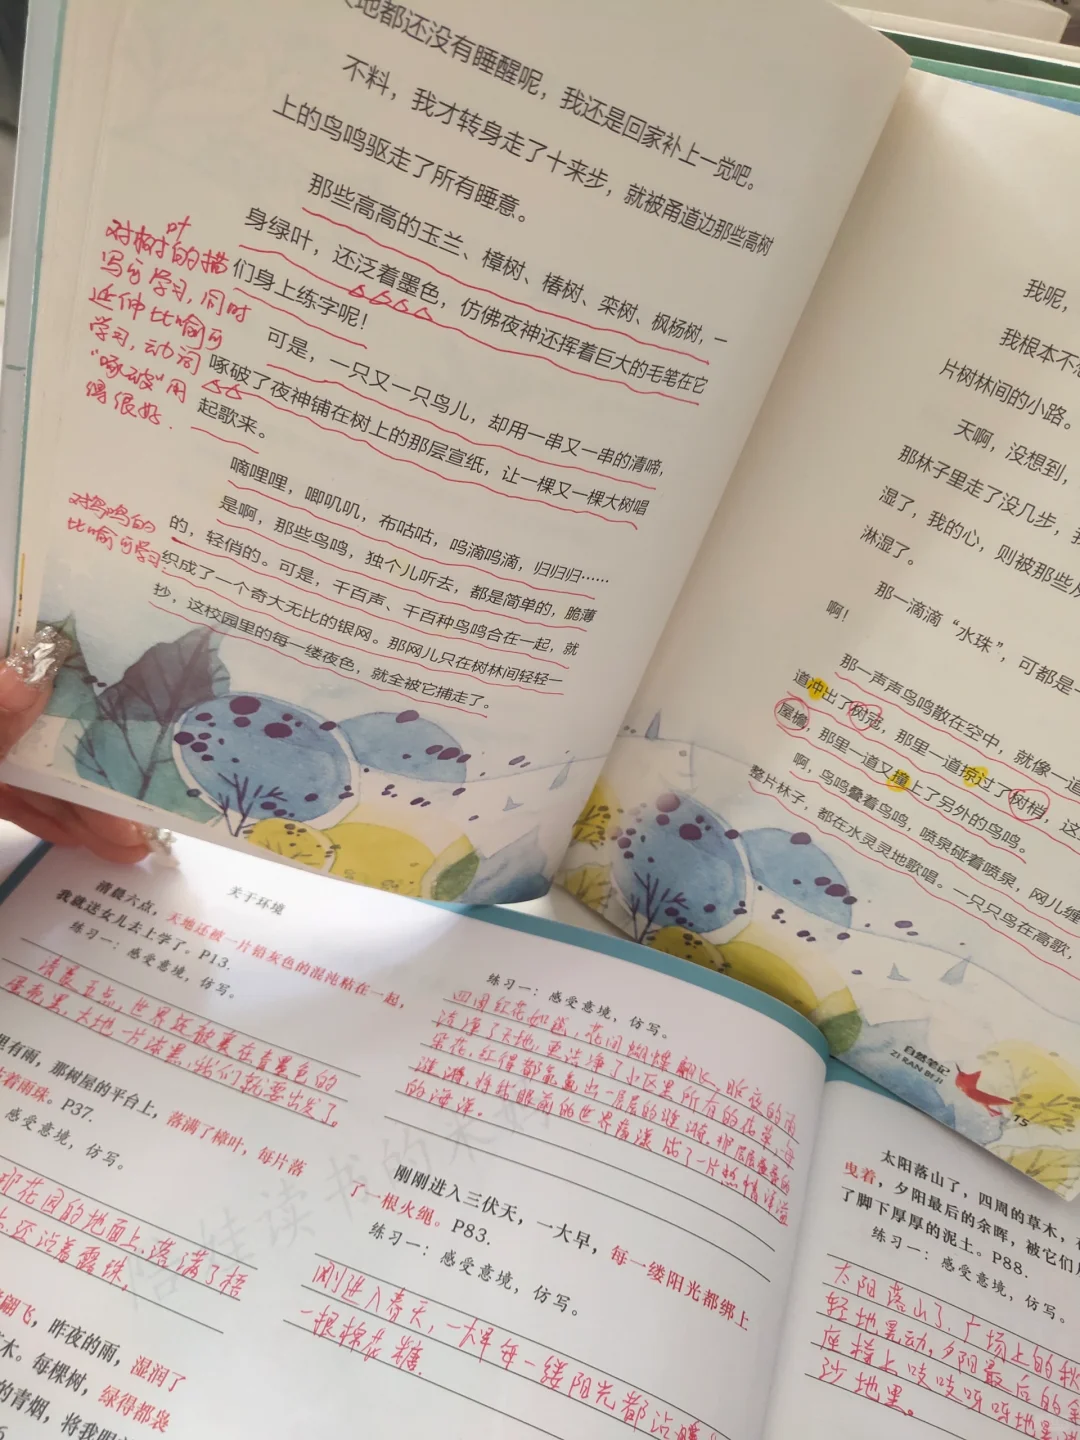 地都还没有睡醒呢，我还是回家补上一觉吧。
不料，我才转身走了十来步，就被甬道边那些高树
上的鸟鸣驱走了所有睡意。
那些高高的玉兰、樟树、椿树、栾树、枫杨树，一
身绿叶，还泛着墨色，仿佛夜神还挥着巨大的毛笔在它
们身上练字呢！
可是，一只又一只鸟儿，却用一串又一串的清啼，
啄破了夜神铺在树上的那层宣纸，让一棵又一棵大树唱
起歌来。
嘀哩哩，唧叽叽，布咕咕，呜滴呜滴，归归归……
是啊，那些鸟鸣，独个儿听去，都是简单的，脆薄
的，轻俏的。可是，千百声、千百种鸟鸣合在一起，就
织成了一个奇大无比的银网。那网儿只在树林间轻轻一
抄，这校园里的每一缕夜色，就全被它捕走了。
叶
对树的描
写可学习，同时
延伸比喻可
学习，动词
“啄破”用
得很好.
对鸟鸣的
比喻可学习.
我呢，
我根本不
片树林间的小路。
天啊，没想到，
那林子里走了没几步，
湿了，我的心，则被那些
淋湿了。
那一滴滴“水珠”，可都是
啊！
那一声声鸟鸣散在空中，就像一道
道冲出了树冠，那里一道掠过了树梢，这
屋檐，那里一道又撞上了另外的鸟鸣。
啊，鸟鸣叠着鸟鸣，喷泉碰着喷泉，网儿缠
整片林子，都在水灵灵地歌唱。一只只鸟在高歌，
自然笔记
ZI RAN BIJI
15
关于环境
清晨六点，天地还被一片铅灰色的混沌粘在一起，
我就送女儿去上学了。P13.
练习一：感受意境，仿写。
清晨五点，世界还被裹在青墨色的
大地一片漆黑，我们就要出发了。
里有雨，那树屋的平台上，落满了樟叶，每片落
着雨珠。P37.
感受意境，仿写。
那花园的地面上，落满了梧
还沾着露珠。
翩飞，昨夜的雨，湿润了
木。每棵树，绿得都袅
的青烟，将我眼
练习一：感受意境，仿写。
四周红花如毯，花间蝴蝶翩飞，昨夜的雨
洁净了天地，更洁净了小区里所有的花草，每
朵花，红得都氤氲出一层层的涟漪，那层层叠叠的
涟漪，将我眼前的世界荡漾成了一片热情洋溢
的海洋。
刚刚进入三伏天，一大早，每一缕阳光都绑上
了一根火绳。P83.
练习一：感受意境，仿写。
刚进入春天，一大早每一缕阳光都沾
一根棉花糖.
太阳落山了，四周的草木，
曳着，夕阳最后的余晖，被它们
了脚下厚厚的泥土。P88.
练习一：感受意境，仿写。
太阳落山了，广场上的秋
轻地晃动，夕阳最后的余
座椅上吱吱呀呀地晃
沙地里。